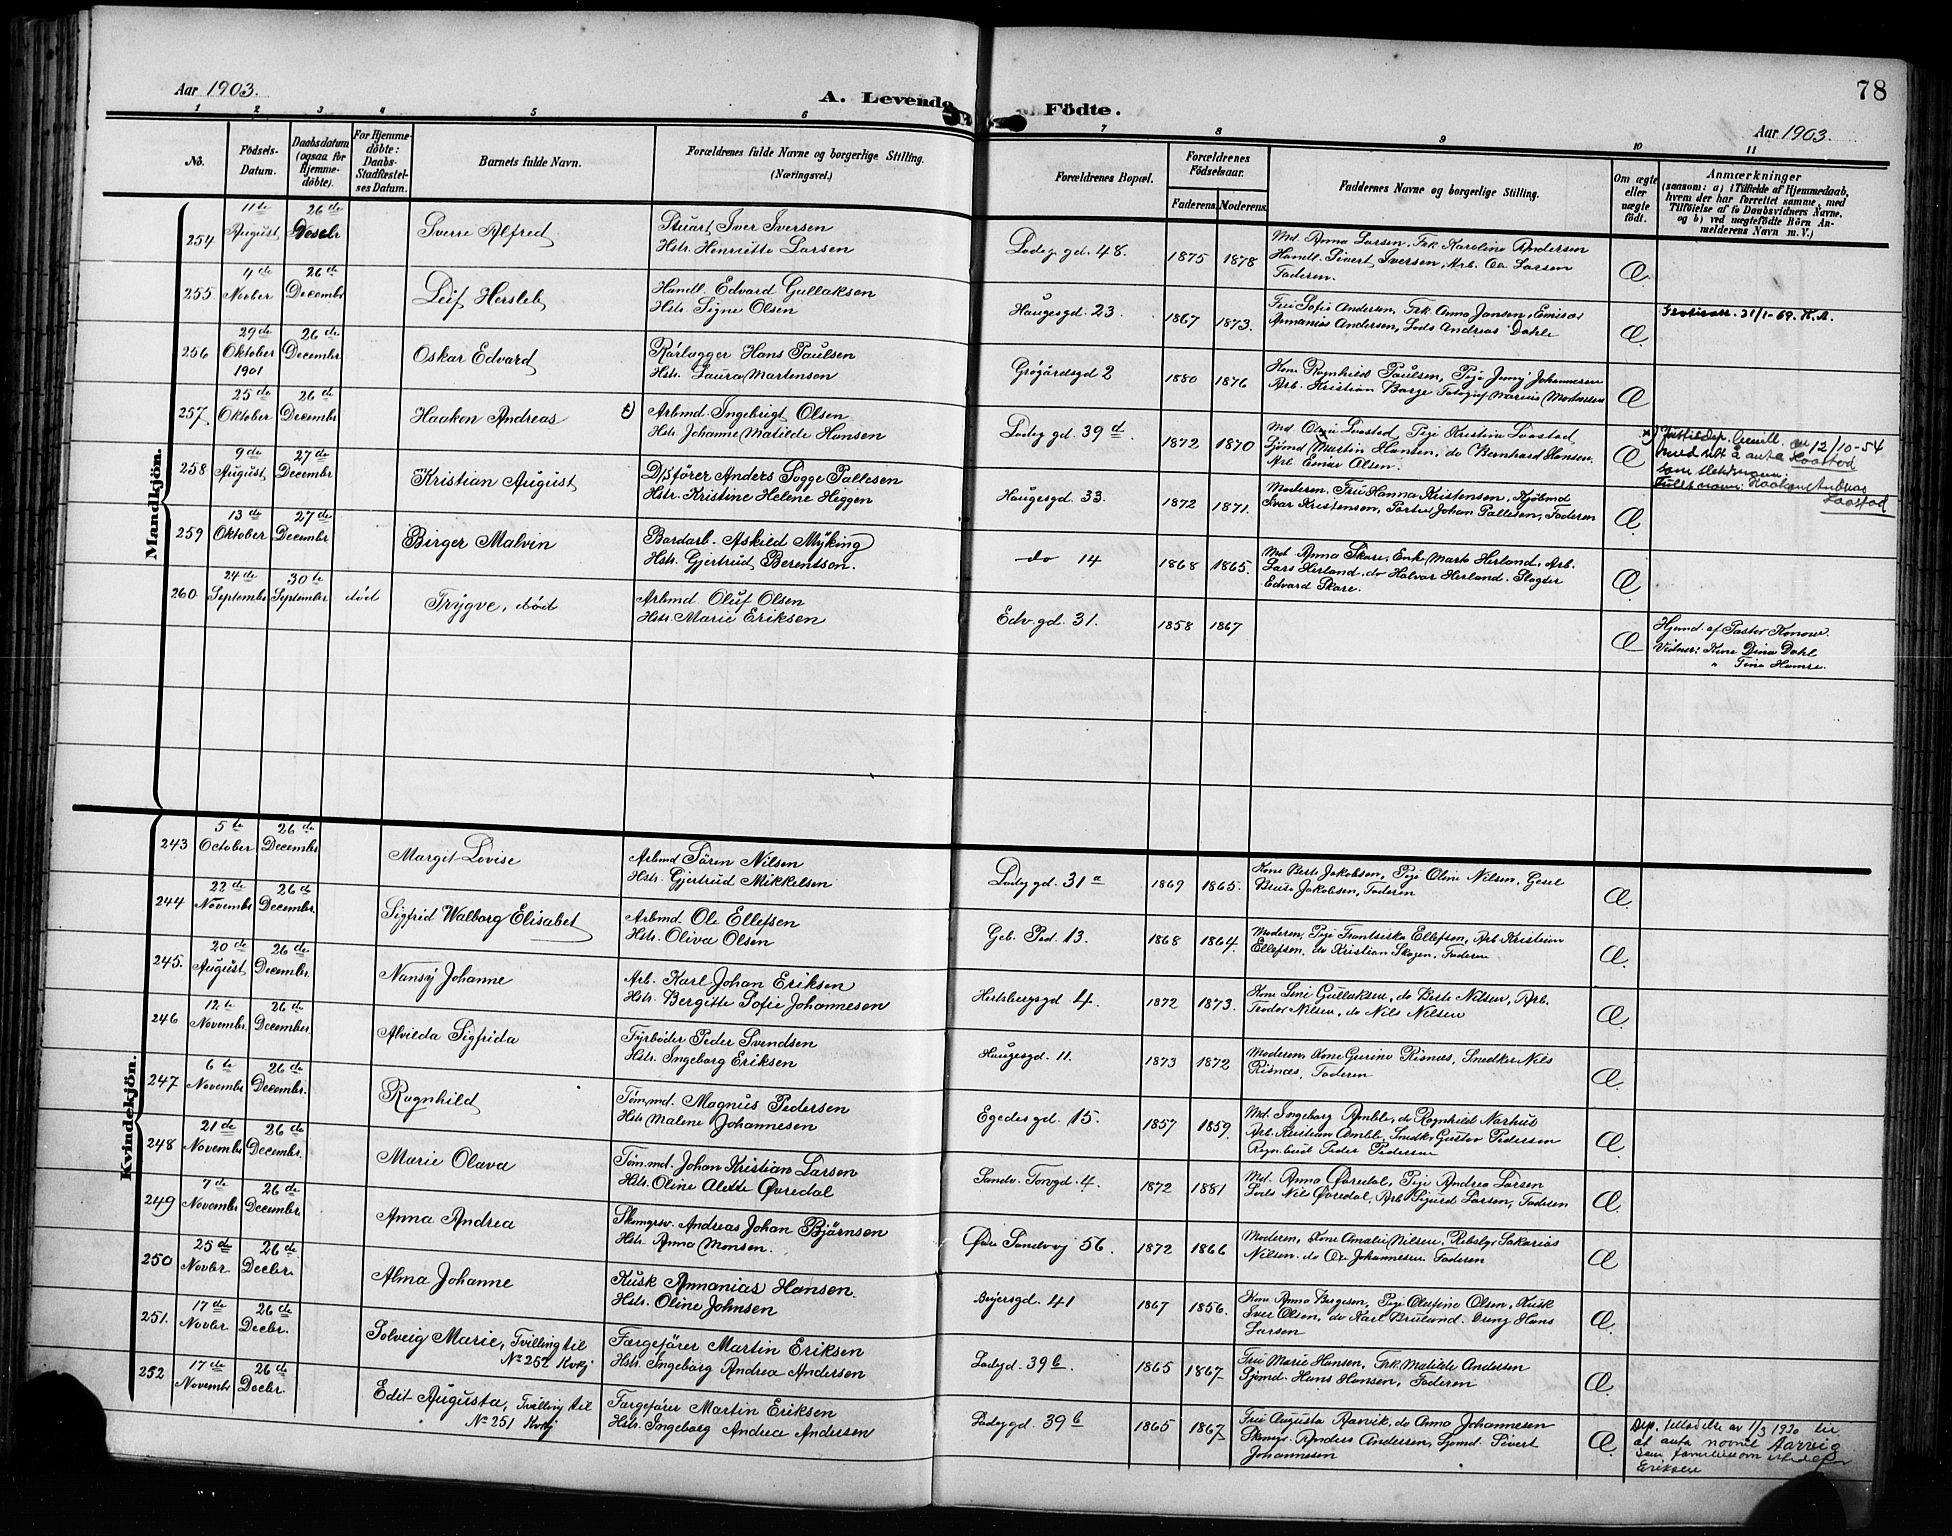 78
Aar 1903.
A. Levende Födte.
Aar 1903.
1 2 3 4 5 6 7 8 9 10 11
No.
Födsels-Datum.
Daabsdatum (ogsaa for Hjemmedöbte).
For Hjemmedöbte: Daabs-Stadfæstelses Datum.
Barnets fulde Navn.
Forældrenes fulde Navne og borgerlige Stilling. (Næringsvei.)
Forældrenes Bopæl.
Forældrenes Födselsaar.
Faderens. Moderens.
Faddernes Navne og borgerlige Stilling.
Om ægte eller uægte födt.
Anmærkninger
(saasom: a) i Tilfælde af Hjemmedaab, hvem der har forrettet samme, med Tilföielse af to Daabsvidners Navne. og b) ved uægtefödte Börn Anmelderens Navn m. V.)
Mandkjön.
254 11te August 26de Decebr Sverre Alfred Stuart Iver Iversen
Hstr. Henriette Larsen Ladeg gd. 48. 1875 1878 Md. Anna Larsen, Frk Karoline Andersen
Handl. Sivert Iversen, Arb. Ole Larsen
Faderen. Æ
255 4de Novber 26de Decembr Leif Hersleb Handl. Edvard Gullaksen
Hstr. Signe Olsen Haugesgd. 23. 1867 1873. Fru Sofie Andersen, Frk. Anna Jansen, Emissær
Annanias Andersen, Lods Andreas Dahle Æ 21/1-69. K.A.
256 29de Oktober 1901 26de Decembr Oskar Edvard Rörlægger Hans Paulsen
Hstr. Laura Martensen Grøgårdsgd 2 1880 1876 Kone Ragnhild Paulsen, Pige Jenny Johannesen
Arb. Kristian Borge Fotograf Marius Mortensen Æ
257 25de Oktober 26de Decembr Haakon Andreas Arbmd. Ingebrigt Olsen
Hstr. Johanne Matilde Hansen Ladeg gd. 39 d. 1872 1870 Md Oline Laastad, Pige Kristina Laastad
Sjömd Martin Hansen, do Bernhard Hansen.
Arb. Einar Olsen. Æ x) Justisdep. bevill. av 12/10-54
med rett å anta Laastad
som slektsnavn.
Fullt navn: Haakon Andreas
Laastad
258 9de August 27de Decembr Kristian August D/sförer Anders Sogge Pallesen
Hstr. Kristine Helene Heggen Haugesgd. 33. 1872 1871. Moderen, Fru Hanna Kristensen, Kjöbmd
Ivar Kristensen, Johan Pallesen, Faderen Æ
259 13de Oktober 27de Decembr Birger Malvin Bordarb. Askild Myking
Hstr. Gjertrud Berentsen. do 14 1868 1865. Md. Anna Skare, Enke Marta Herland, Arb.
Lars Herland, do Halvar Herland. Slagter
Edvard Skare. Æ
260 24de September 30te September död Trygve, död Arbmd Oluf Olsen
Hstr. Marie Eriksen Edv. gd. 31. 1858 1867 Æ Hjemd. af Pastor Konow.
Vidner: Kone Dina Dahl
" Tina Hamre.
Kvindekjön.
243 5te October 26de Decembr Margit Lovise Arbmd Sören Nilsen
Hstr. Gjertrud Mikkelsen Ladeg gd. 31 a 1869 1865. Kone Berte Jakobsen, Pige Oline Nilsen, Gesel
Jakobsen, Faderen Æ.
244 22de Novembr 26de Decembr. Sigfrid Walborg Elisabet Arbmd. Ole Ellefsen
Hstr. Oliva Olsen Geb. Ped. 13. 1868 1864. Moderen, Pige Frantsiska Ellefsen, Arb. Kristian
Ellefsen, do Kristian Skogen, Faderen Æ.
245. 20de August 26de Decembr. Nansy Johanne Arb. Karl Johan Eriksen
Hstr. Bergitte Sofie Johannesen Hertsbergsgd 4. 1872 1873. Kone Sine Gullaksen, do Berte Nilsen, Arb.
Teodor Nilsen, do Nils Nilsen Æ.
246 12te Novembr. 26de Decembr. Alvilda Sigfrida Fyrböder Peder Svendsen
Hstr. Ingeborg Eriksen Haugesgd. 11. 1873 1872 Moderen, Kone Gurine Risnæs, Snedker Nils
Risnæs, Faderen Æ.
247 6te Novembr 26de Decembr. Ragnhild Töm.md. Magnus Pedersen
Hstr Malene Johannesen Egedesgd. 15. 1857 1859. Md. Ingeborg Amble, do Ragnhild Narhus
Arb. Kristian Amble, Snedk. Gustav Pedersen
Peder Pedersen Æ
248 21de Novembr 26de Decembr. Marie Olava Töm.md. Johan Kristian Larsen
Hstr. Oline Alette Øvredal Sandv. Torvgd. 4. 1872 1881 Md. Anna Øvredal, Pige Andrea Larsen
Lods Nils Øvredal, Arb Sigurd Larsen, Faderen Æ.
249 7de Novembr 26de Decembr. Anna Andrea Skomgrsv. Andreas Johan Björnsen
Hstr. Anna Monsen. Øvre Sandvvj 56. 1872 1866 Moderen, Kone Amalie Nilsen, Rebslgr Sakarias
Nilsen. do Ole Johannesen. Faderen Æ
250 25de Novbr 26de Decbr. Alma Johanne Kusk Annanias Hansen.
Hstr. Oline Johnsen 41 1867 1856. Kone Anna Birgesen, Pige Olefine Olsen, Kusk
Iver Olsen, do Karl Bruland. Dreng Hans
Larsen Æ.
251. 17de Novbr 26de Decbr. Solveig Marie, Tvilling til
No 252 Kvkj Færgefører Martin Eriksen
Hstr. Ingeborg Andrea Andersen Ladegd. 39 b. 1865 1867 Fru Marie Hansen, Frk. Matilde Andersen
Sjömd. Hans Hansen, Faderen Æ
252 17de Novembr 26de Decbr. Edit Augusta, Tvilling til
No 251 Kvkj Færgefører Martin Eriksen
Hstr. Ingeborg Andrea Andersen Ladeg gd 39 b 1865 1867 Fru Augusta Aarvik, do Anna Johannesen
Skomgr. Anders Andersen, Sjømd. Sivert
Johannesen Æ. Dep. tilladelse av 1/3 1920 til
at anta navnet Aarvig
som familienavn istedefor
Eriksen